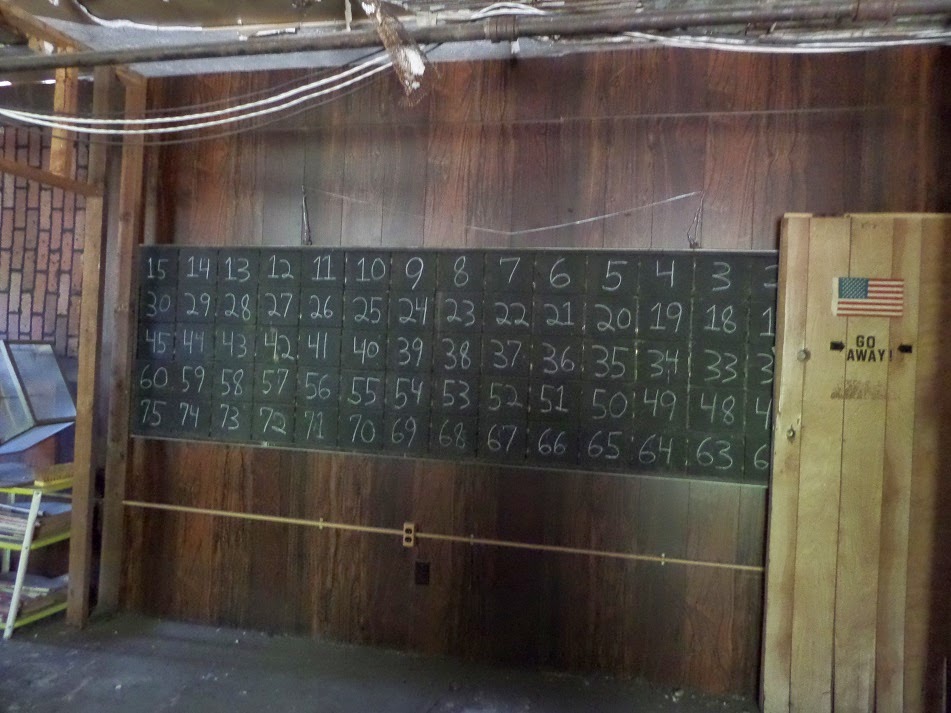 15 14 13 12 11 10 9 8 7 6 5 4 3
30 29 28 27 26 25 24 23 22 21 20 19 18
45 44 43 42 41 40 39 38 37 36 35 34 33
60 59 58 57 56 55 54 53 52 51 50 49 48
75 74 73 72 71 70 69 68 67 66 65 64 63
GO
AWAY!